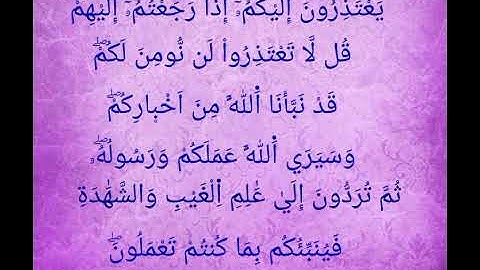 يَعْتَذِرُونَ إِلَيْكُمُۥٓ إِذَا رَجَعْتُمُۥٓ إِلَيْهِمْ
قُل لَّا تَعْتَذِرُواْ لَن نُّومِنَ لَكُمْۖ
قَدْ نَبَّأَنَا اَ۬للَّهُ مِنَ اَخْبِارِكُمْۖ
وَسَيَرَي اَ۬للَّهُ عَمَلَكُمْ وَرَسُولُهُۥۖ
ثُمَّ تُرَدُّونَ إِلَيٰ عَٰلِمِ اِ۬لْغَيْبِ وَالشَّهَٰدَةِ
فَيُنَبِّئُكُم بِمَا كُنتُمْ تَعْمَلُونَۖ